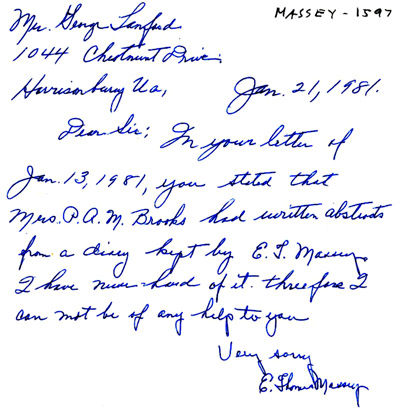 MASSEY - 1597
Mr. George Sanford
1044 Chestnut Drive
Harrisonburg Va,
Jan. 21, 1981.
Dear Sir; In your letter of
Jan. 13, 1981, you stated that
Mrs. P. A. M. Brooks had written abstracts
from a diary kept by E. T. Massey
I have never heard of it. threefore I
can not be of any help to you
Very sorry
E. Thomas Massey